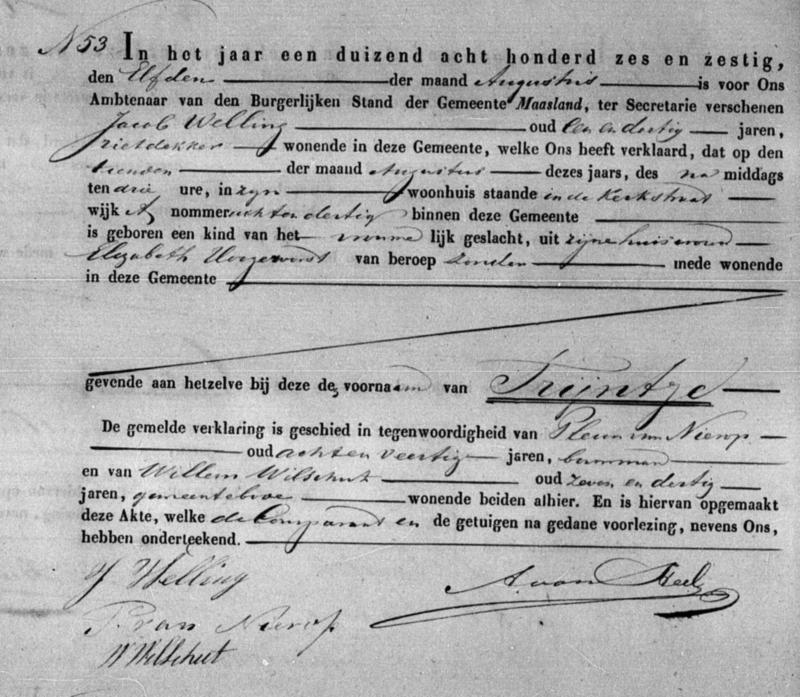 N 53 In het jaar een duizend acht honderd zes en zestig,
den Elfden der maand Augustus is voor Ons
Ambtenaar van den Burgerlijken Stand der Gemeente Maasland, ter Secretarie verschenen
Jacob Welling oud een en dertig jaren,
rietdekker wonende in deze Gemeente, welke Ons heeft verklaard, dat op den
tienden der maand Augustus dezes jaars, des na middags
ten drie ure, in zijn woonhuis staande in de Kerkstraat
wijk A nommer acht en dertig binnen deze Gemeente
is geboren een kind van het vrouwe lijk geslacht, uit zijne huisvrouw
Elizabeth van beroep zonder mede wonende
in deze Gemeente
gevende aan hetzelve bij deze de voornaam van Trijntje
De gemelde verklaring is geschied in tegenwoordigheid van Pleun van Nierop
oud acht en veertig jaren, bouwman
en van Willem Wilschut oud zeven en dertig
jaren, gemeentebode wonende beiden alhier. En is hiervan opgemaakt
deze Akte, welke de Comparant en de getuigen na gedane voorlezing, nevens Ons,
hebben onderteekend.
J Welling
A. van
P. van Nierop
W Wilschut